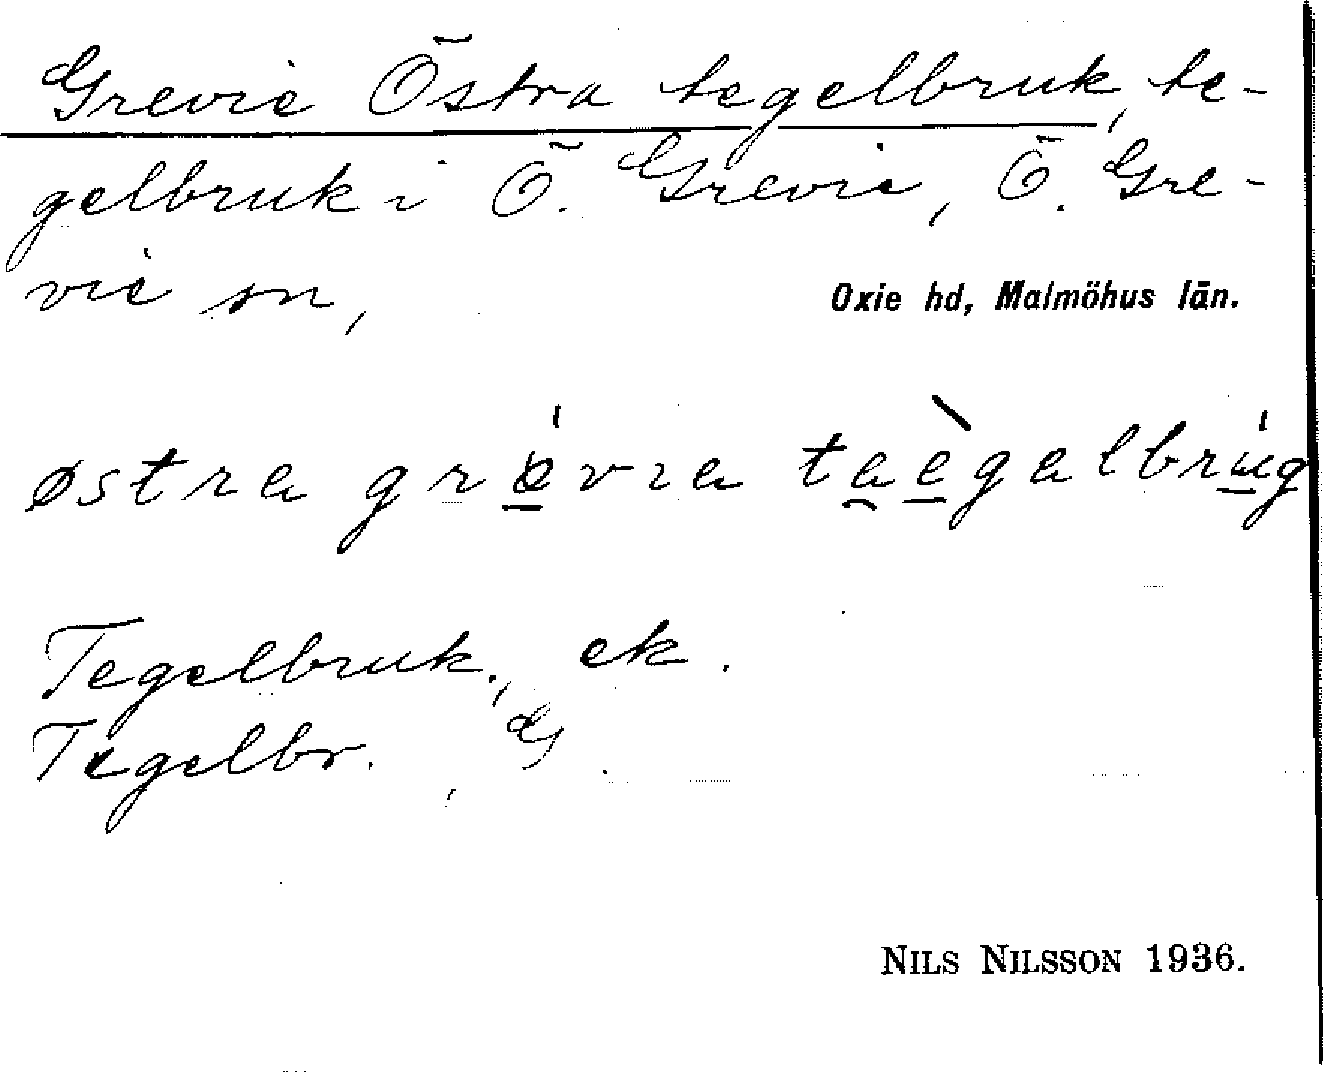 Grevie Östra tegelbruk, te-
gelbruk i Ö. Grevie, Ö. Gre-
vie sn,
Oxie hd, Malmöhus län.
østra grèvıa taègalbrùg
Tegelbruk., ek.
Tegelbr.
NILS NILSSON 1936.